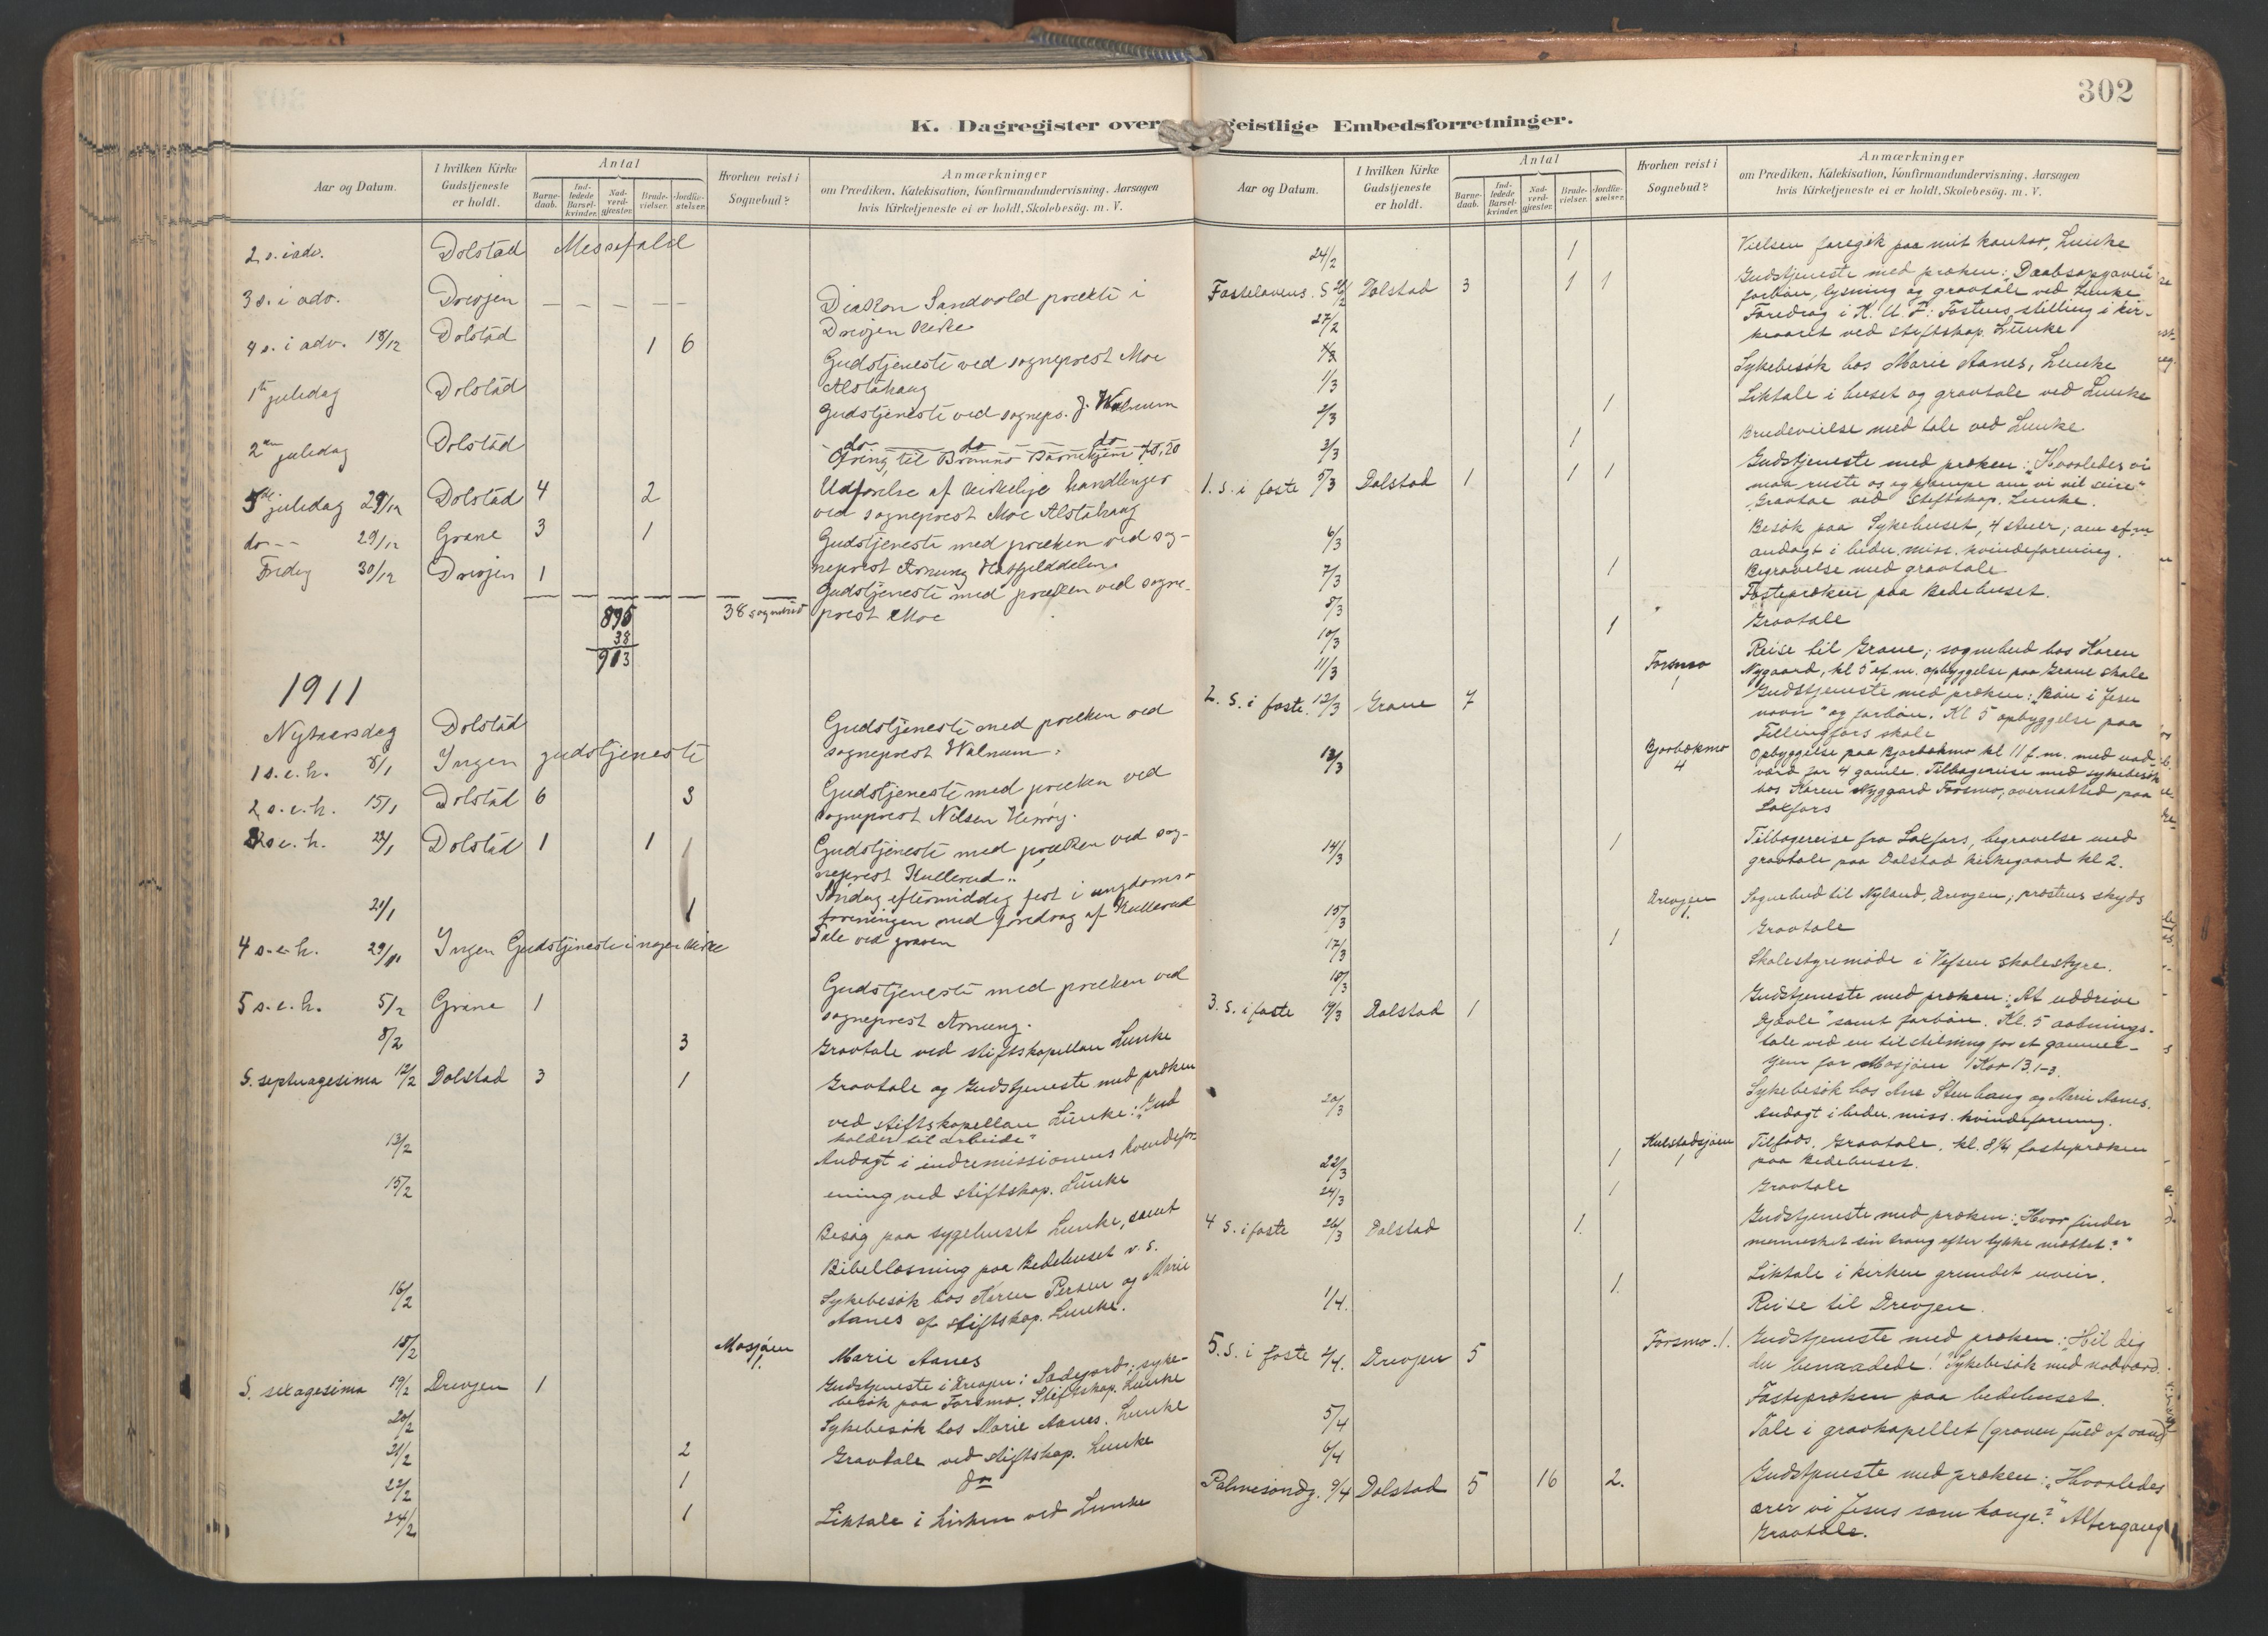 302
K. Dagregister over geistlige Embedsforretninger.
Aar og Datum.
I hvilken Kirke Gudstjeneste er holdt.
Antal
Barnedaab.
Indledede Barselkvinder.
Nadverdgjæster.
Brudevielser.
Jordfæstelser.
Hvorhen reist i Sognebud?
Anmærkninger
om Prædiken, Katekisation, Konfirmandundervisning, Aarsagen
hvis Kirketjeneste ei er holdt, Skolebesøg. m. V.
2 s. i adv. Dolstad Messefald
3 s. i adv. Drevjen — — — — — Diakon Sandvold prækte i
Drevjen Kirke
4 s. i adv. 18/12 Dolstad 1 6
Gudstjeneste ved sogneprest Moe
Alstahaug
1ste juledag Dolstad
Gudstjeneste ved sognepr. J. Walnum
2den juledag Dolstad
do do do
Ofring til Barnehjem
5te juledag 29/12 Dolstad 4 2 Udførelse af kirkelige handlinger
ved sogneprest Moe Alstahaug
do - - 29/12 Grane 3 1 Gudstjeneste med præken ved sog-
neprest Arnung Hatfjelddalen
Fredag 30/12 Drevjen 1
Gudstjeneste med præken ved sogne-
prest Moe
895 38 sognebud
38
913
1911
Nytaarsdag Dolstad Gudstjeneste med præken ved
sogneprest Walnum.
1 s. e. h. 8/1 Ingen gudstjeneste
2 s. e. h. 15/1 Dolstad 6 3 Gudstjeneste med præken ved
sogneprest Nilsen Herøy.
s. e. h. 22/1 Dolstad 1 1 Gudstjeneste med præken ved sog-
neprest Kullerud..
Søndag eftermiddag fest i ungdoms-
foreningen med foredrag af Kullerud
21/1 1 Tale ved graven
4 s. e. h. 29/1 Ingen Gudstjeneste i nogen Kirke
5 s. e. h. 5/2 Grane 1 Gudstjeneste med præken ved
sogneprest Arnung.
8/2 3 Gravtale ved stiftskapellan Lunke
S. septuagesima 12/2 Dolstad 3 1 Gravtale og Gudstjeneste med præken
ved stiftskapellan Lunke: „Gud
kalder til arbeide“
13/2 Andagt i indremissionens kvindefor-
ening ved stiftskap. Lunke
15/2 Besøg paa sygehuset Lunke, samt
Bibellæsning paa Bedehuset v. s.
16/2 Sykebesøk hos Karen Persen og Marie
Aanes af stiftskap. Lunke.
18/2 Mosjøen 1. Marie Aanes
S. sexagesima 19/2 Drevjen 1 Gudstjeneste i Drevjen: Sædejord; syke-
besøk paa Forsmo. Stiftskap. Lunke
20/2 Sykebesøk hos Marie Aanes. Lunke
21/2 2 Gravtale ved stiftskap. Lunke
22/2 1 do
24/2 1 Liktale i kirken ved Lunke
Aar og Datum.
I hvilken Kirke Gudstjeneste er holdt.
Antal
Barnedaab.
Indledede Barselkvinder.
Nadverdgjæster.
Brudevielser.
Jordfæstelser.
Hvorhen reist i Sognebud?
Anmærkninger
om Prædiken, Katekisation, Konfirmandundervisning, Aarsagen
hvis Kirketjeneste ei er holdt, Skolebesøg. m. V.
24/2 1 Vielsen foregik paa mit kontor, Lunke
Fastelavens. S 26/2 Dolstad 3 1 1 Gudstjeneste med præken: „Daabsopgaven“
forbøn, lysning og gravtale ved Lunke
27/2 Foredrag i K. U. F: Fastens stilling i kir-
keaaret ved stiftskap. Lunke
Sykebesøk hos Marie Aanes, Lunke
1/3
2/3 1 Liktale i huset og gravtale ved Lunke
3/3 1 Brudevielse med tale ved Lunke
1. S. i faste 5/3 Dolstad 1 1 1 Gudstjeneste med præken: „Hvorledes vi
maa ruste os og kjæmpe om vi vil seire“
Gravtale ved Stiftskap. Lunke.
6/3 Besøk paa Sykehuset, 4 stuer; om ef.m.
andagt i indre miss. kvindeforening.
7/3 1 Begravelse med gravtale
8/3 Fastepræken paa Bedehuset.
10/3 1 Gravtale
11/3 Forsmo 1 Reise til Grane; sognebud hos Karen
Nygaard, kl 5 ef.m. opbyggelse paa Grane skole
2. S. i faste 12/3 Grane 7 Gudstjeneste med præken: „Bøn i Jesu
navn“ og forbøn. Kl 5 opbyggelse paa
Fellingfors skole
13/3 Bjørbækmo 4 Opbyggelse paa Bjørbækmo kl 11 f.m. med nad-
værd for 4 gamle. Tilbagereise med sykebesøk
hos Karen Nyggard Forsmo; overnatted paa
Laxfors
14/3 1 Tilbagereise fra Laxfors, begravelse med
gravtale paa Dolstad kirkegaard kl 2.
15/3 Drevjen 1. Sognebud til Nyland, Drevjen; prostens skyds
17/3 1 Gravtale
18/3 Skolestyremøde i Vefsen skolestyre.
3. S. i faste 19/3 Dolstad 1 Gudstjeneste med præken: „At uddrive
Djævle“ samt forbøn. Kl. 5 aabnings-
tale ved en tilstelning for et gammel-
hjem for Mosjøen 1 Kor 13.1-3.
20/3 Sykebesøk hos Ane Stenhaug og Marie Aanes.
Andagt i indre miss. kvindeforening.
22/3 Kulstadsjøen 1 1 Tilfods. Gravtale. kl. 8 1/4 fastepræken
paa Bedehuset.
24/3 1 Gravtale
4 S. i faste 26/3 Dolstad 1. Gudstjeneste med præken: „Hvor finder
mennesket sin trang efter lykke mættet?“
1. Liktale i kirken grundet uveir.
1/4. Reise til Drevjen.
5. S. i faste 2/4. Drevjen 5 Forsmo. 1. Gudstjeneste med præken: „Hil dig
du benaadede! Sykebesøk med nadværd.
5/4 Fastepræken paa bedehuset.
6/4 Tale i gravkapellet (graven fuld af vand)
Palmesøndg. 9/4 Dolstad 5 16 2. Gudstjeneste med præken: „Hvorledes
ærer vi Jesus som konge?“ Altergang
Gravtale.